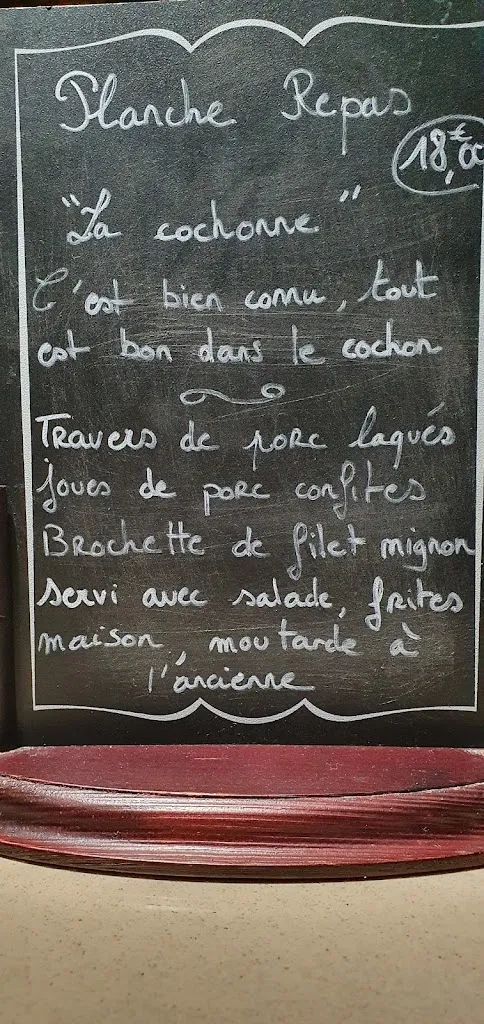 Planche Repas
18,€00
"La cochonne"
C'est bien connu, tout
est bon dans le cochon
Travers de porc laqués
joues de porc confites
Brochette de filet mignon
servi avec salade, frites
maison, moutarde à
l'ancienne